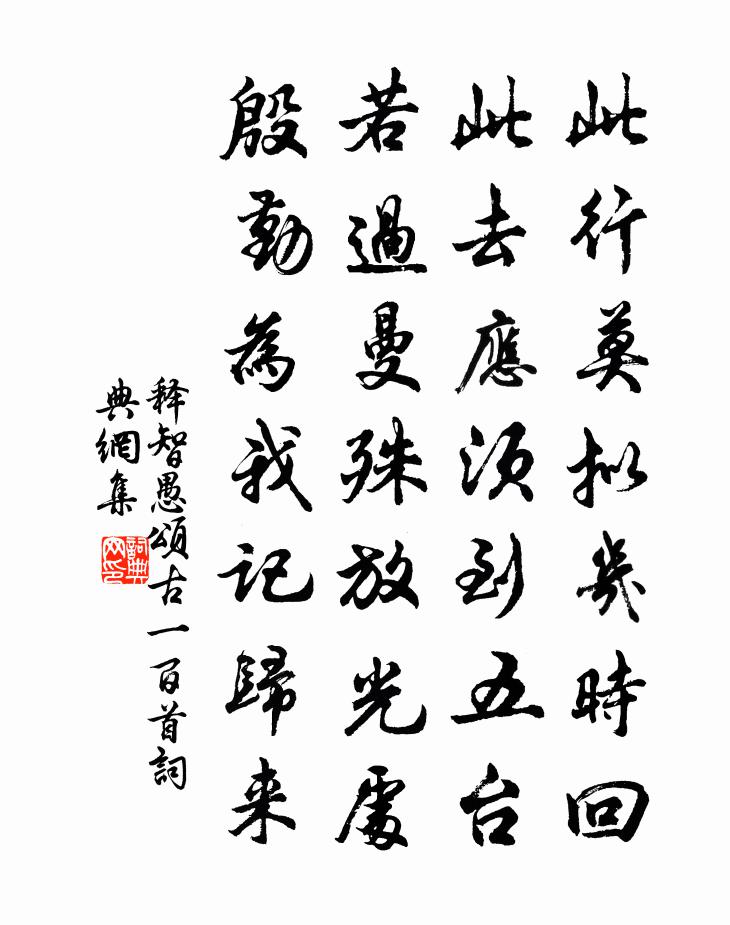 此行莫拟幾時回
此去應須到五台
若過曼殊放光處
殷勤為我記歸来
释智愚頌古一百首詞
典網集
詞典網印